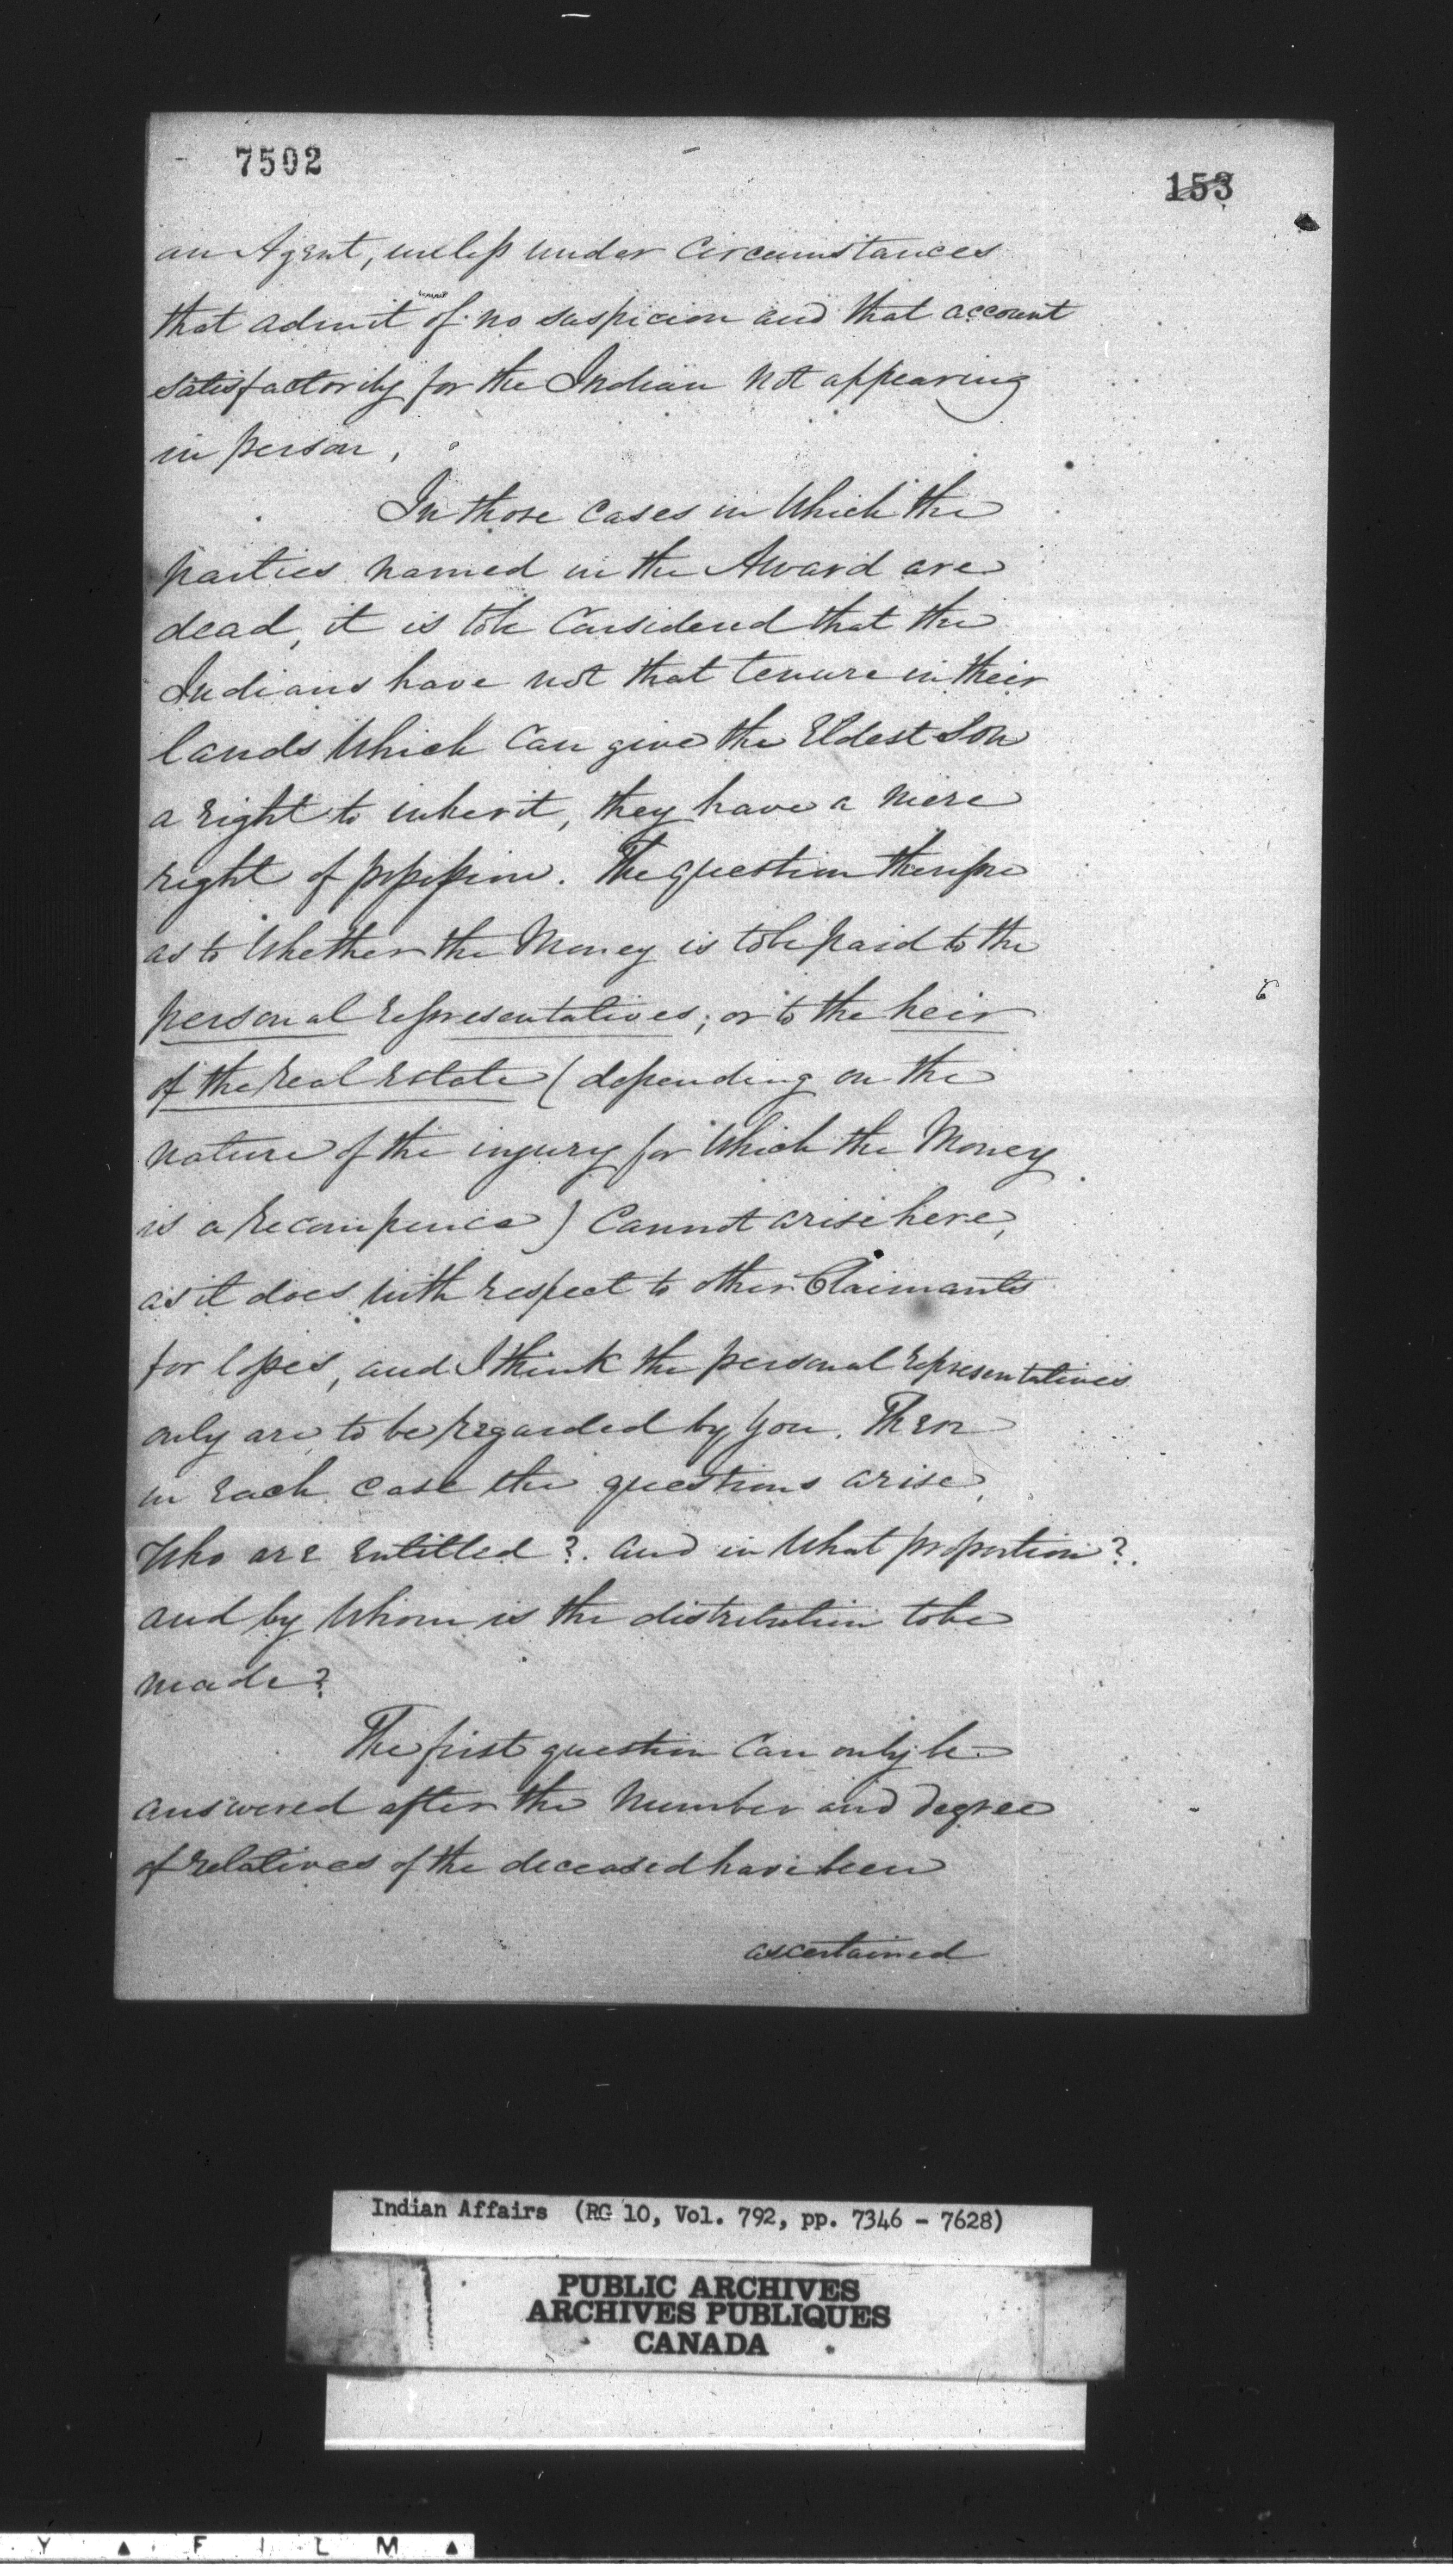 7502
153
an Agent, unless under Circumstances
that admit of no suspicion and that account
satisfactorily for the Indian not appearing
in person,
In those Cases in Which the
parties named in the Award are
dead, it is to be Considered that the
Indians have not that tenure in their
lands Which Can give the Eldest Son
a right to inherit, they have a mere
right of possession. The question therefore
as to Whether the Money is to be paid to the
personal representatives; or to the heir
of the real estate (depending on the
nature of the injury for Which the Money
is a recompence) Cannot arise here,
as it does with respect to other Claimants
for losses, and I think the personal representatives
only are to be regarded by You. Then
in each case the questions arise,
Who are entitled? and in What proportion?
and by Whom is the distribution to be
made?
The first question Can only be
answered after the Number and degree
of relatives of the deceased have been
ascertained
Indian Affairs (RG 10, Vol. 792, pp. 7346 - 7628)
PUBLIC ARCHIVES
ARCHIVES PUBLIQUES
CANADA
Y ▲ F I L M ▲